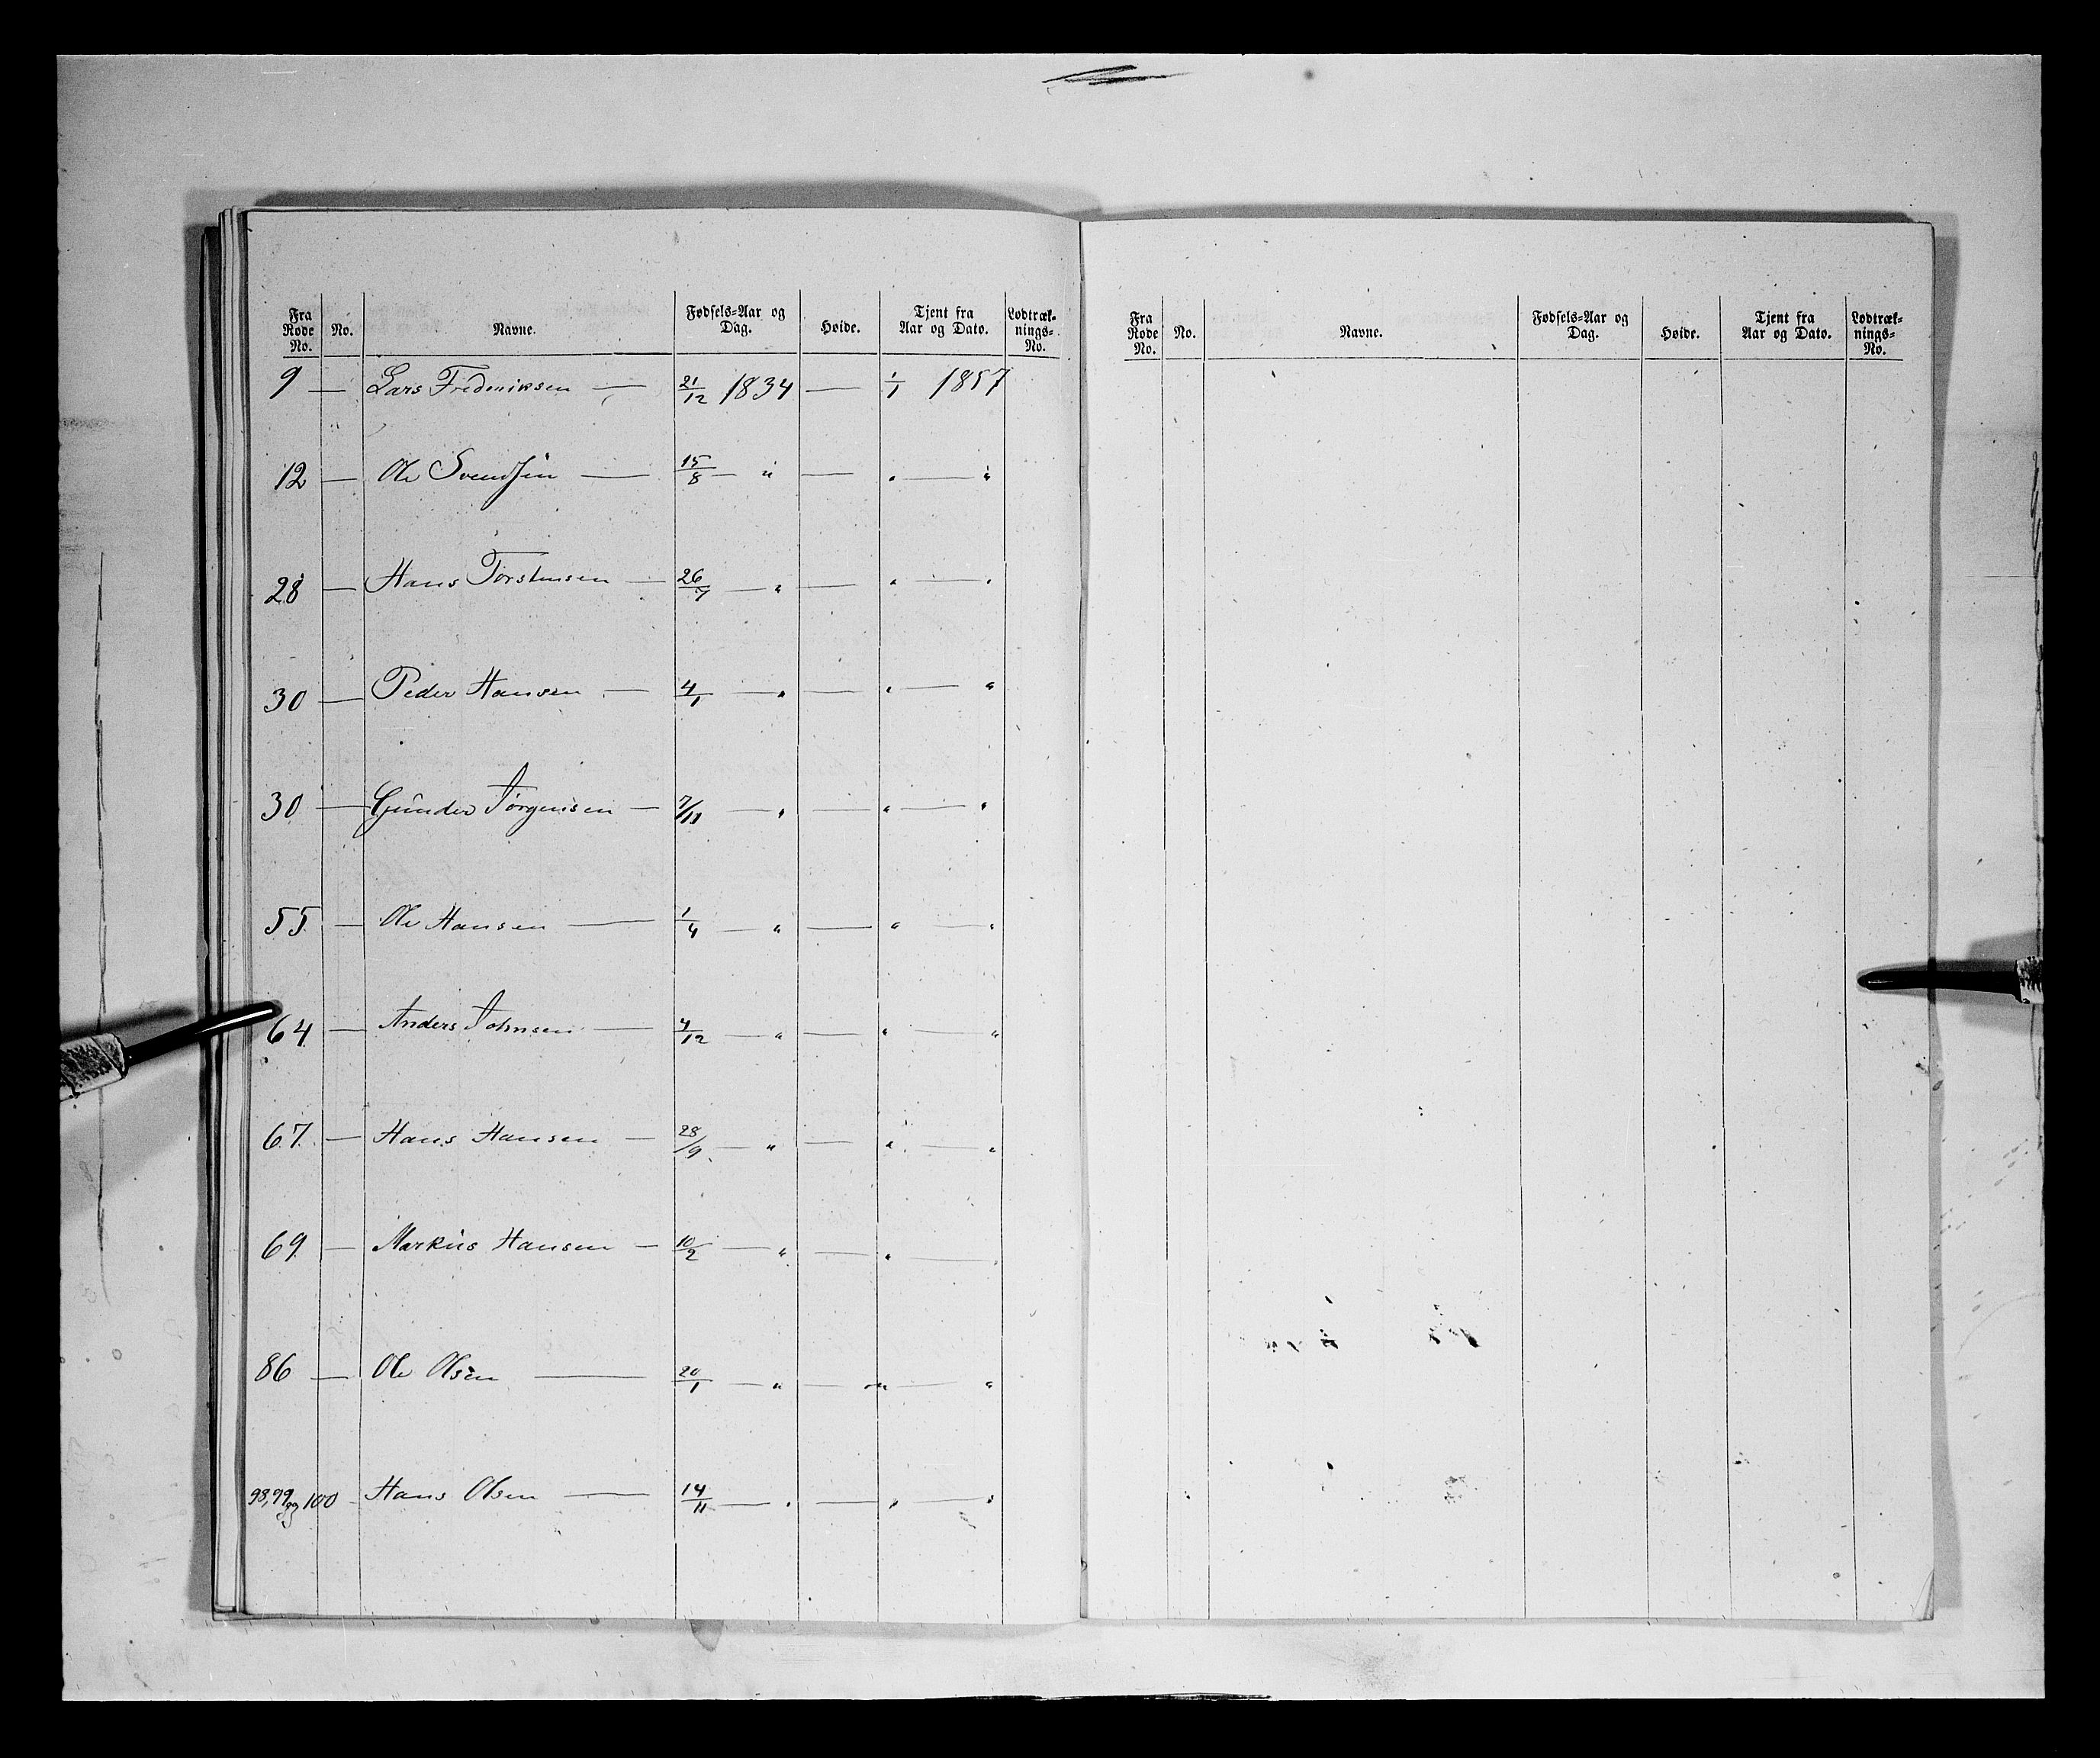 Fra Rode No. | No. | Navne. | Fødsels-Aar og Dag. | Høide. | Tjent fra Aar og Dato. | Lodtræk-nings-No.
9 — Lars Frederiksen — 21/12 1834 — 1/1 1857
12 — Ole Svendsen — 15/8 — " — " — "
28 — Hans Torstensen — 26/7 — " — " — "
30 — Peder Hansen — 4/1 — " — " — "
30 — Gunder Jørgensen — 7/11 — " — " — "
55 — Ole Hansen — 1/4 — " — " — "
64 — Anders Johnsen — 4/12 — " — " — "
67 — Hans Hansen — 28/9 — " — " — "
69 — Markus Hansen — 10/2 — " — " — "
86 — Ole Olsen — 20/1 — " — " — "
98, 99 og 100 - Hans Olsen — 14/11 — " — " — "
Fra Rode No. | No. | Navne. | Fødsels-Aar og Dag. | Høide. | Tjent fra Aar og Dato. | Lodtræk-nings-No.